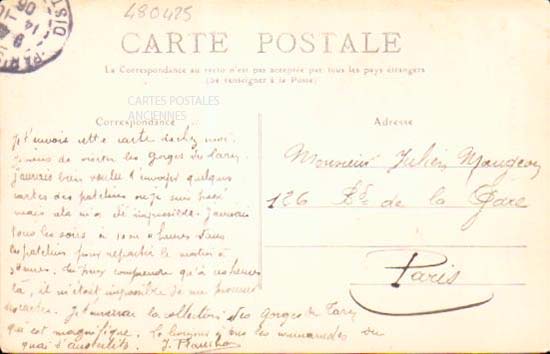 480425
CARTE POSTALE
La Correspondance au recto n'est pas acceptée par tous les pays étrangers
(Se renseigner à la Poste)
CARTES POSTALES
ANCIENNES
Correspondance
Adresse
Je t'envois cette carte de chez moi.
Je viens de visiter les gorges du Tarn
J'aurais bien voulu t'envoyer quelques
cartes des patelins où je suis passé
mais cela m'a été impossible. J'arrivais
tous les soirs à 10 ou heures dans
les patelins pour repartir le matin à
heures. Tu peux comprendre qu'à ces heures
là, il m'était impossible de me procurer
des cartes. Je t'enverrai la collection des gorges du Tarn
qui est magnifique. Le bonjour à tous les camarades du
quai d'austerlitz. J.
Monsieur Julien
126 Bd de la Gare
Paris